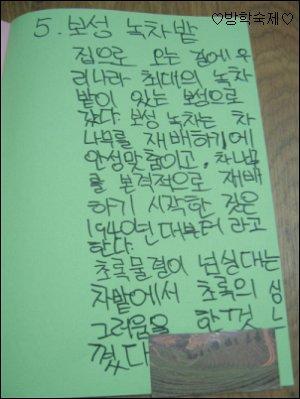 ♡방학숙제♡
5. 보성 녹차밭
집으로 오는 길에 우
리나라 최대의 녹차
밭이 있는 보성으로
갔다. 보성 녹차는 차
나무를 재배하기에
안성맞춤이고, 차나무
를 본격적으로 재배
하기 시작한 것은
1940년대부터 라고
한다.
초록물결이 넘실대는
차밭에서 초록의 싱
그러움을 한껏 느
꼈다